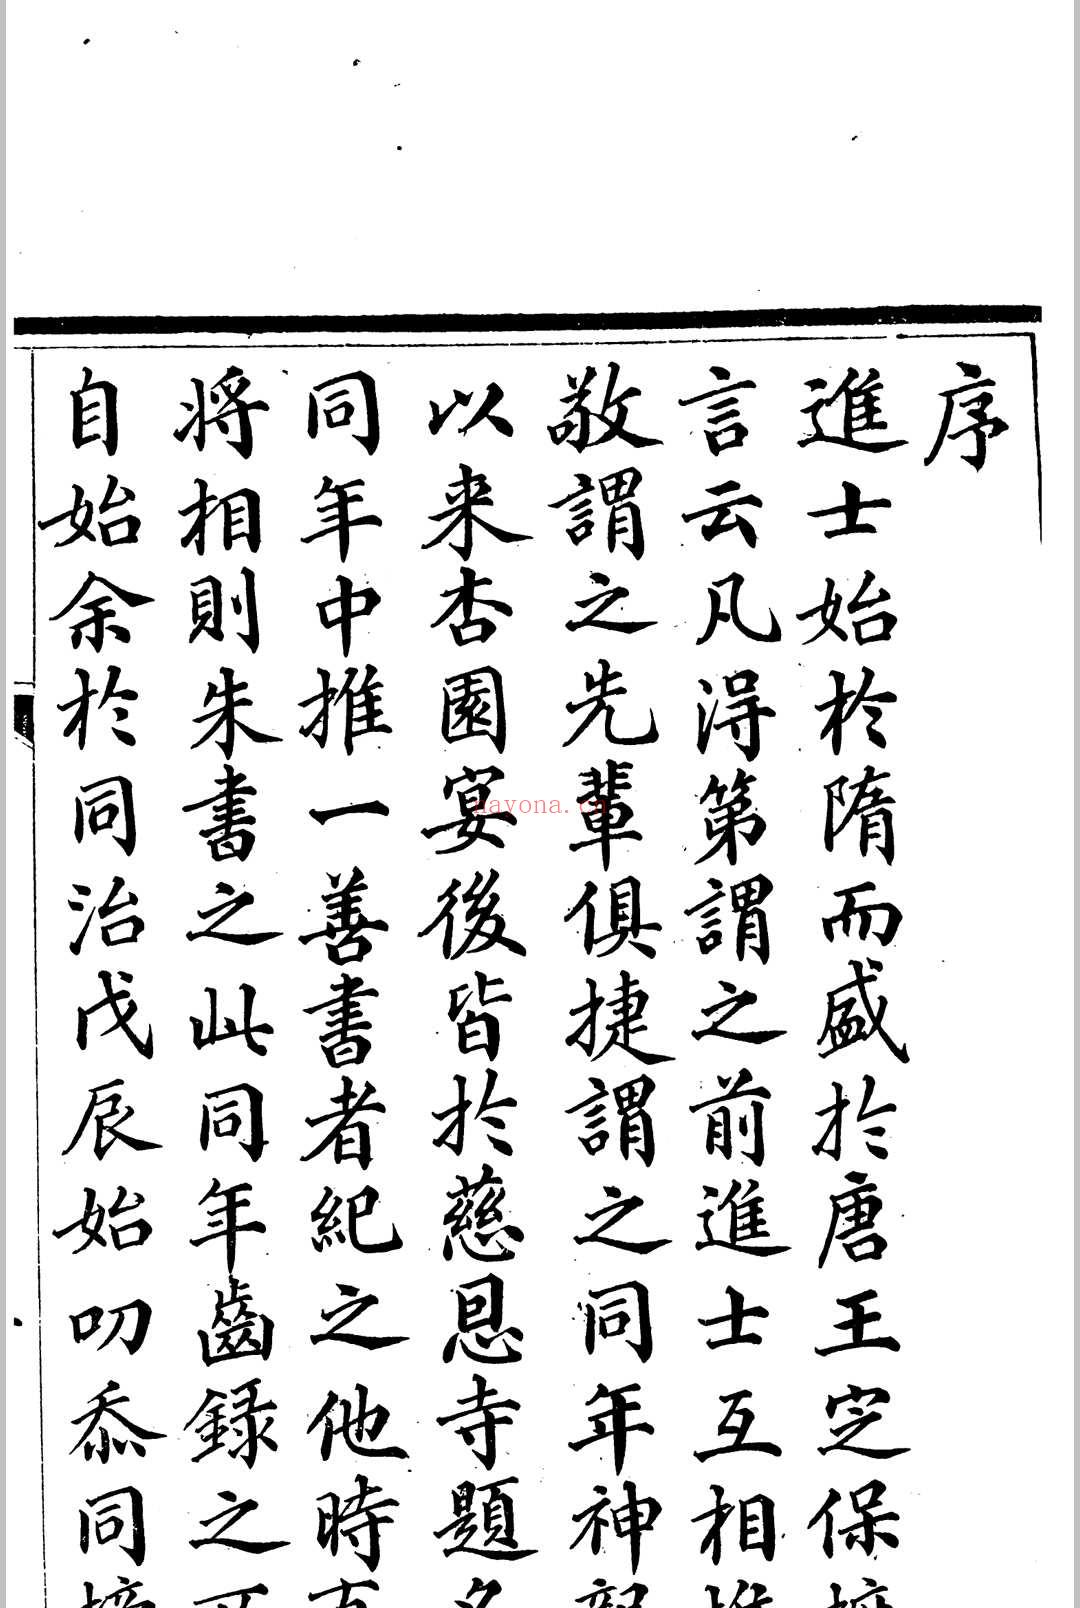 序
進士始於隋而盛於唐王定保
言云凡得第謂之前進士互相
敬謂之先輩俱捷謂之同年神
以来杏園宴後皆於慈恩寺題
同年中推一善書者紀之他時
將相則朱書之此同年齒録之
自始余於同治戊辰始叨忝同
nayona.cn